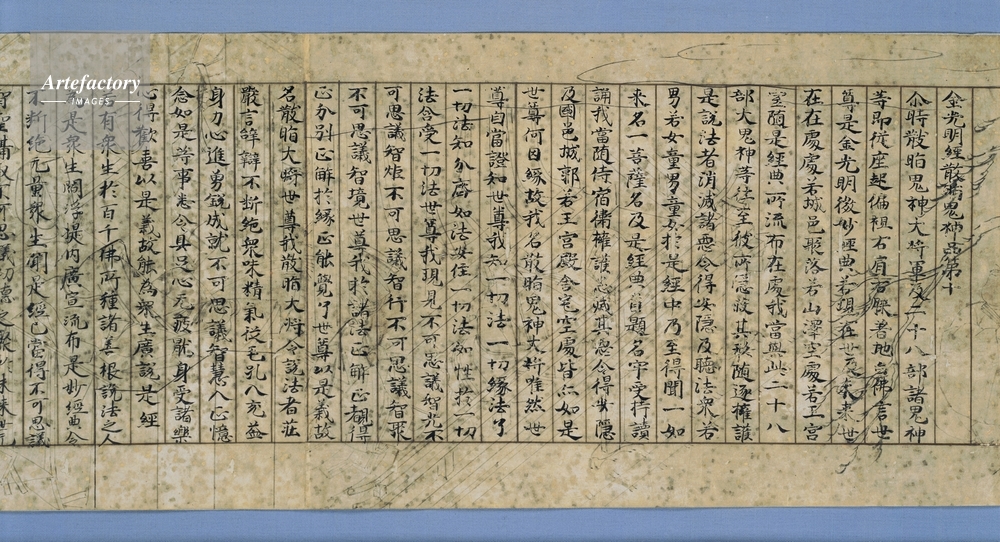 金光明經散脂鬼神品第十
尒時散脂鬼神大將軍及二十八部諸鬼神
等即從座起偏袒右肩右膝著地白佛言世
尊是金光明微妙經典若現在世及未來世
在在處處若城邑聚落若山澤空處若王宮
宅隨是經典所流布在處我當與此二十八
部大鬼神等往至彼所隱蔽其形隨逐擁護
是說法者消滅諸惡令得安隱及聽法衆若
男若女童男童女於是經中乃至得聞一如
來名一菩薩名及是經典首題名字受持讀
誦我當隨侍宿衛擁護悉滅其惡令得安隱
及國邑城郭若王宮殿舍宅空處皆亦如是
世尊何因緣故我名散脂鬼神大將唯然世
尊自當證知世尊我知一切法一切緣法了
一切法知分齊如法安住一切法如性於一切
法含受一切法世尊我現見不可思議智光不
可思議智炬不可思議智行不可思議智聚
不可思議智境世尊我於諸法正解正觀得
正分別正解於緣正能覺了世尊以是義故
名散脂大將世尊我散脂大將令說法者莊
嚴言辭辯不斷絕衆味精氣從毛孔入充益
身力心進勇銳成就不可思議智慧入正憶
念如是等事悉令具足心无疲猒身受諸樂
心得歡喜以是義故能爲衆生廣說是經
有衆生於百千佛所種諸善根說法之人
是衆生閻浮提内廣宣流布是妙經典令
不斷絕无量衆生聞是經已當得不可思議
Artefactory
IMAGES